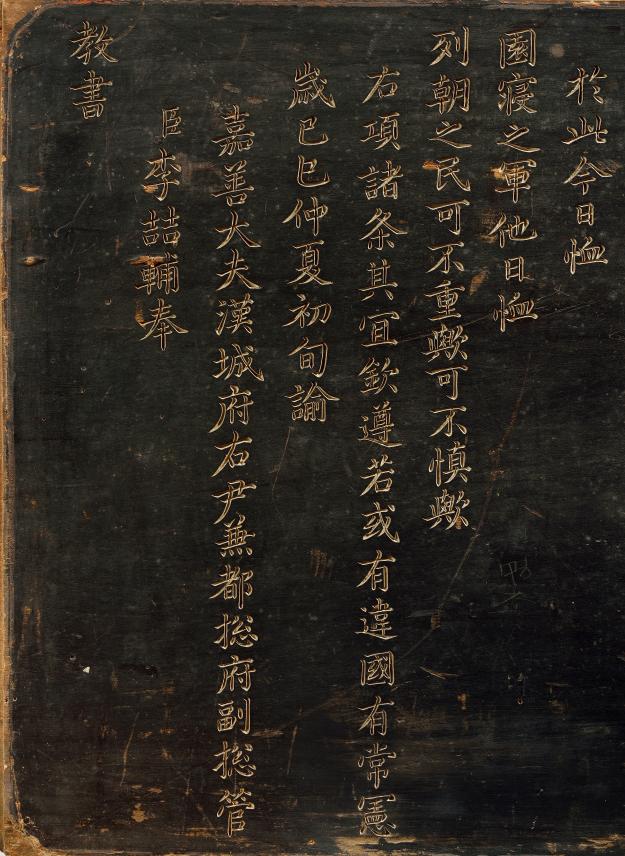 於此今日恤
園寢之軍他日恤
列朝之民可不重歟可不愼歟
右項諸条其冝欽遵若或有違國有常憲
歲己巳仲夏初旬諭
嘉善大夫漢城府右尹兼都摠府副摠管
臣李喆輔奉
教書